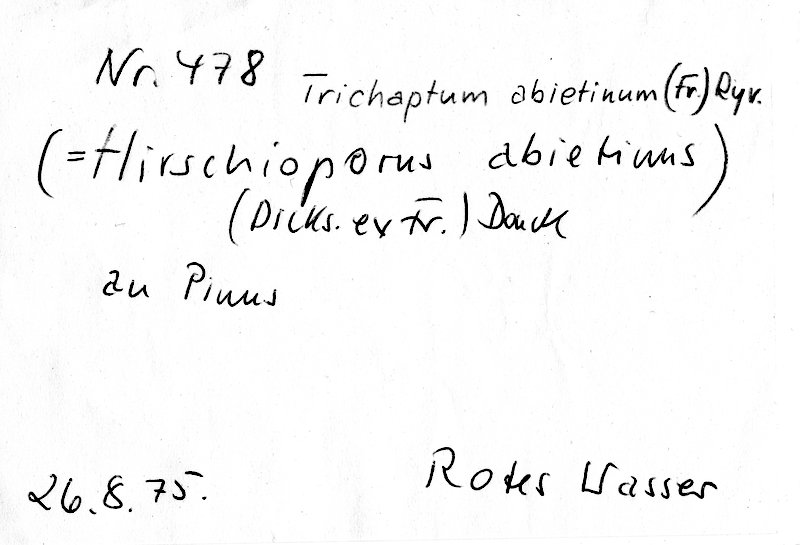 Nr. 478 Trichaptum abietinum (Fr.) Ryv.
(=Hirschioporus abietinus)
(Dicks. ex Fr.) Donk
an Pinus
26.8.75. Rotes Wasser